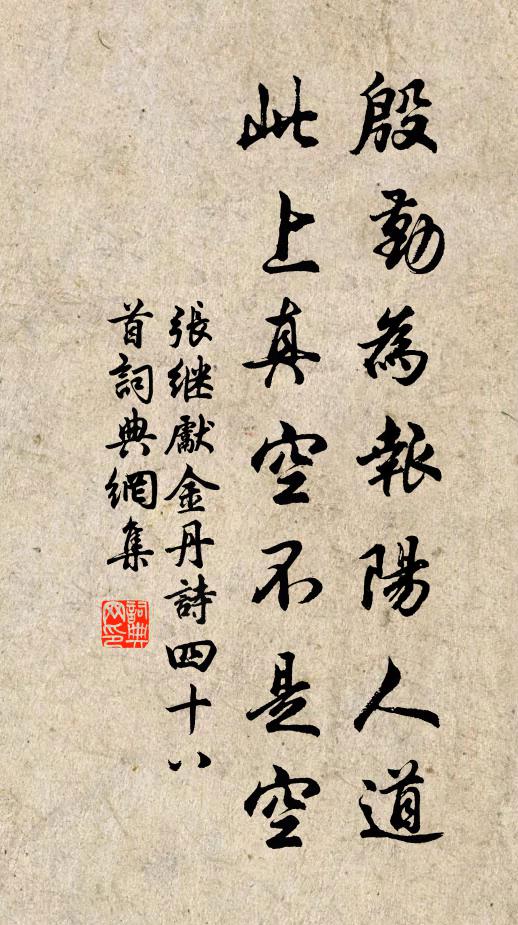 殷勤為報陽人道
此上真空不是空
張继獻金丹詩四十八
首詞典網集
詞典网印